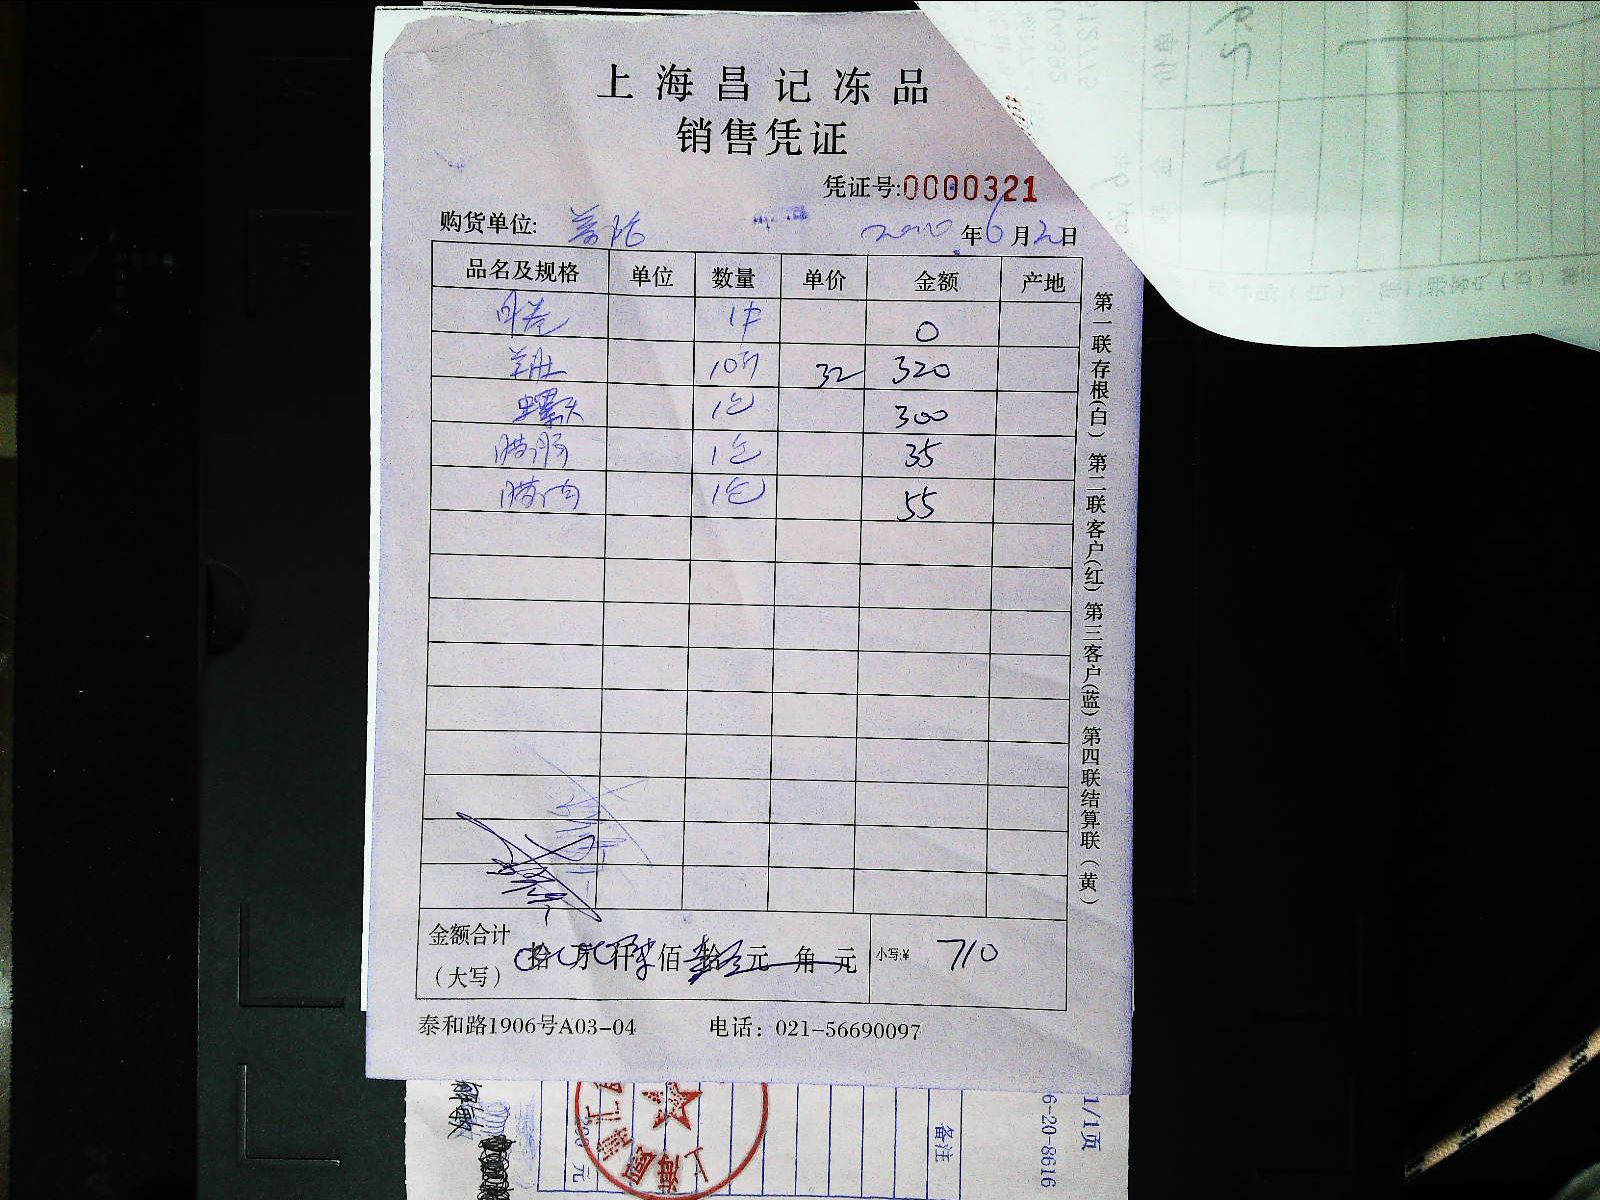 上海昌记冻品
销售凭证
凭证号:0000321
购货单位: 2020年6月2日
品名及规格 单位 数量 单价 金额 产地
1件 0
羊肚 10斤 32 320
螺头 1包 300
腊肠 1包 35
腊肉 1包 55
金额合计(大写) 拾 万 仟 佰 拾 元 角 元 小写:¥ 710
泰和路1906号A03-04 电话：021-56690097
第一联存根(白) 第二联客户(红) 第三客户(蓝) 第四联结算联(黄)
备注
1/1页
6-20-8616
元
上海